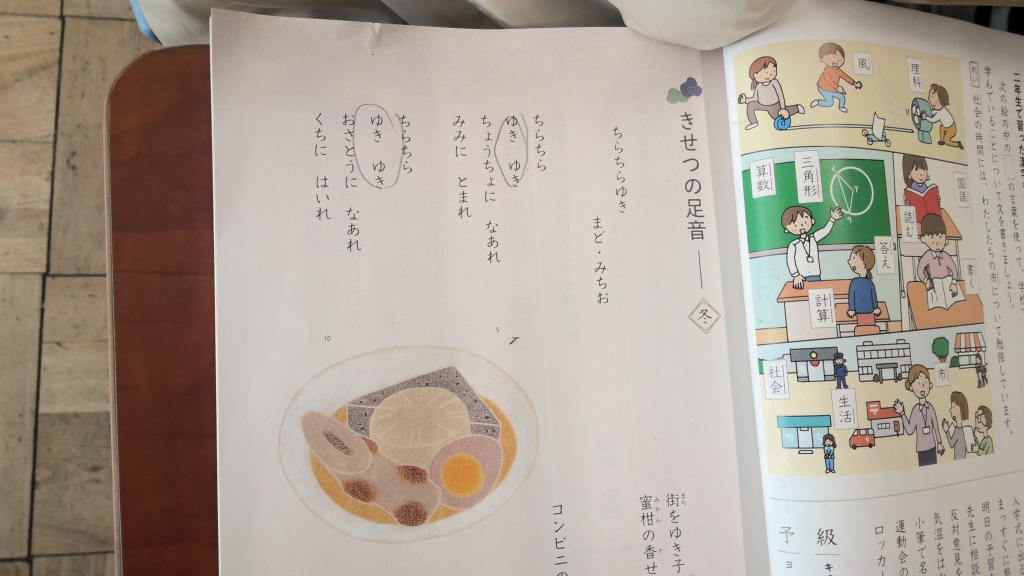 二年生で習った
次の絵の中の の言葉を使って、学校で
学んでいることについて文を書きましょう。
れい 社会の時間には、わたしたちの市について勉強しています。
風
理科
国語
読む
書く
三角形
算数
答え
計算
市
社会
生活
級
予
きせつの足音――冬
ちらちらゆき
まど・みちお
ちらちら
ゆき ゆき
ちょうちょに なあれ
みみに とまれ
ちらちら
ゆき ゆき
おさとうに なあれ
くちに はいれ
5
10
街をゆき子
まち
蜜柑の香せ
みかん か
コンビニの
入学式に
まっすぐに
明日の予習
先生に相談
反対意見を
気温をは
小筆で名
運動会の
ロッカー